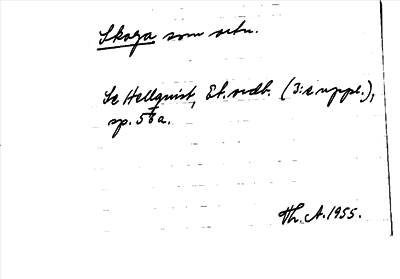 Skoga som ortn.
Se Hellquist, Et. ordb. (3:e uppl.),
sp. 56a.
Th. A. 1955.